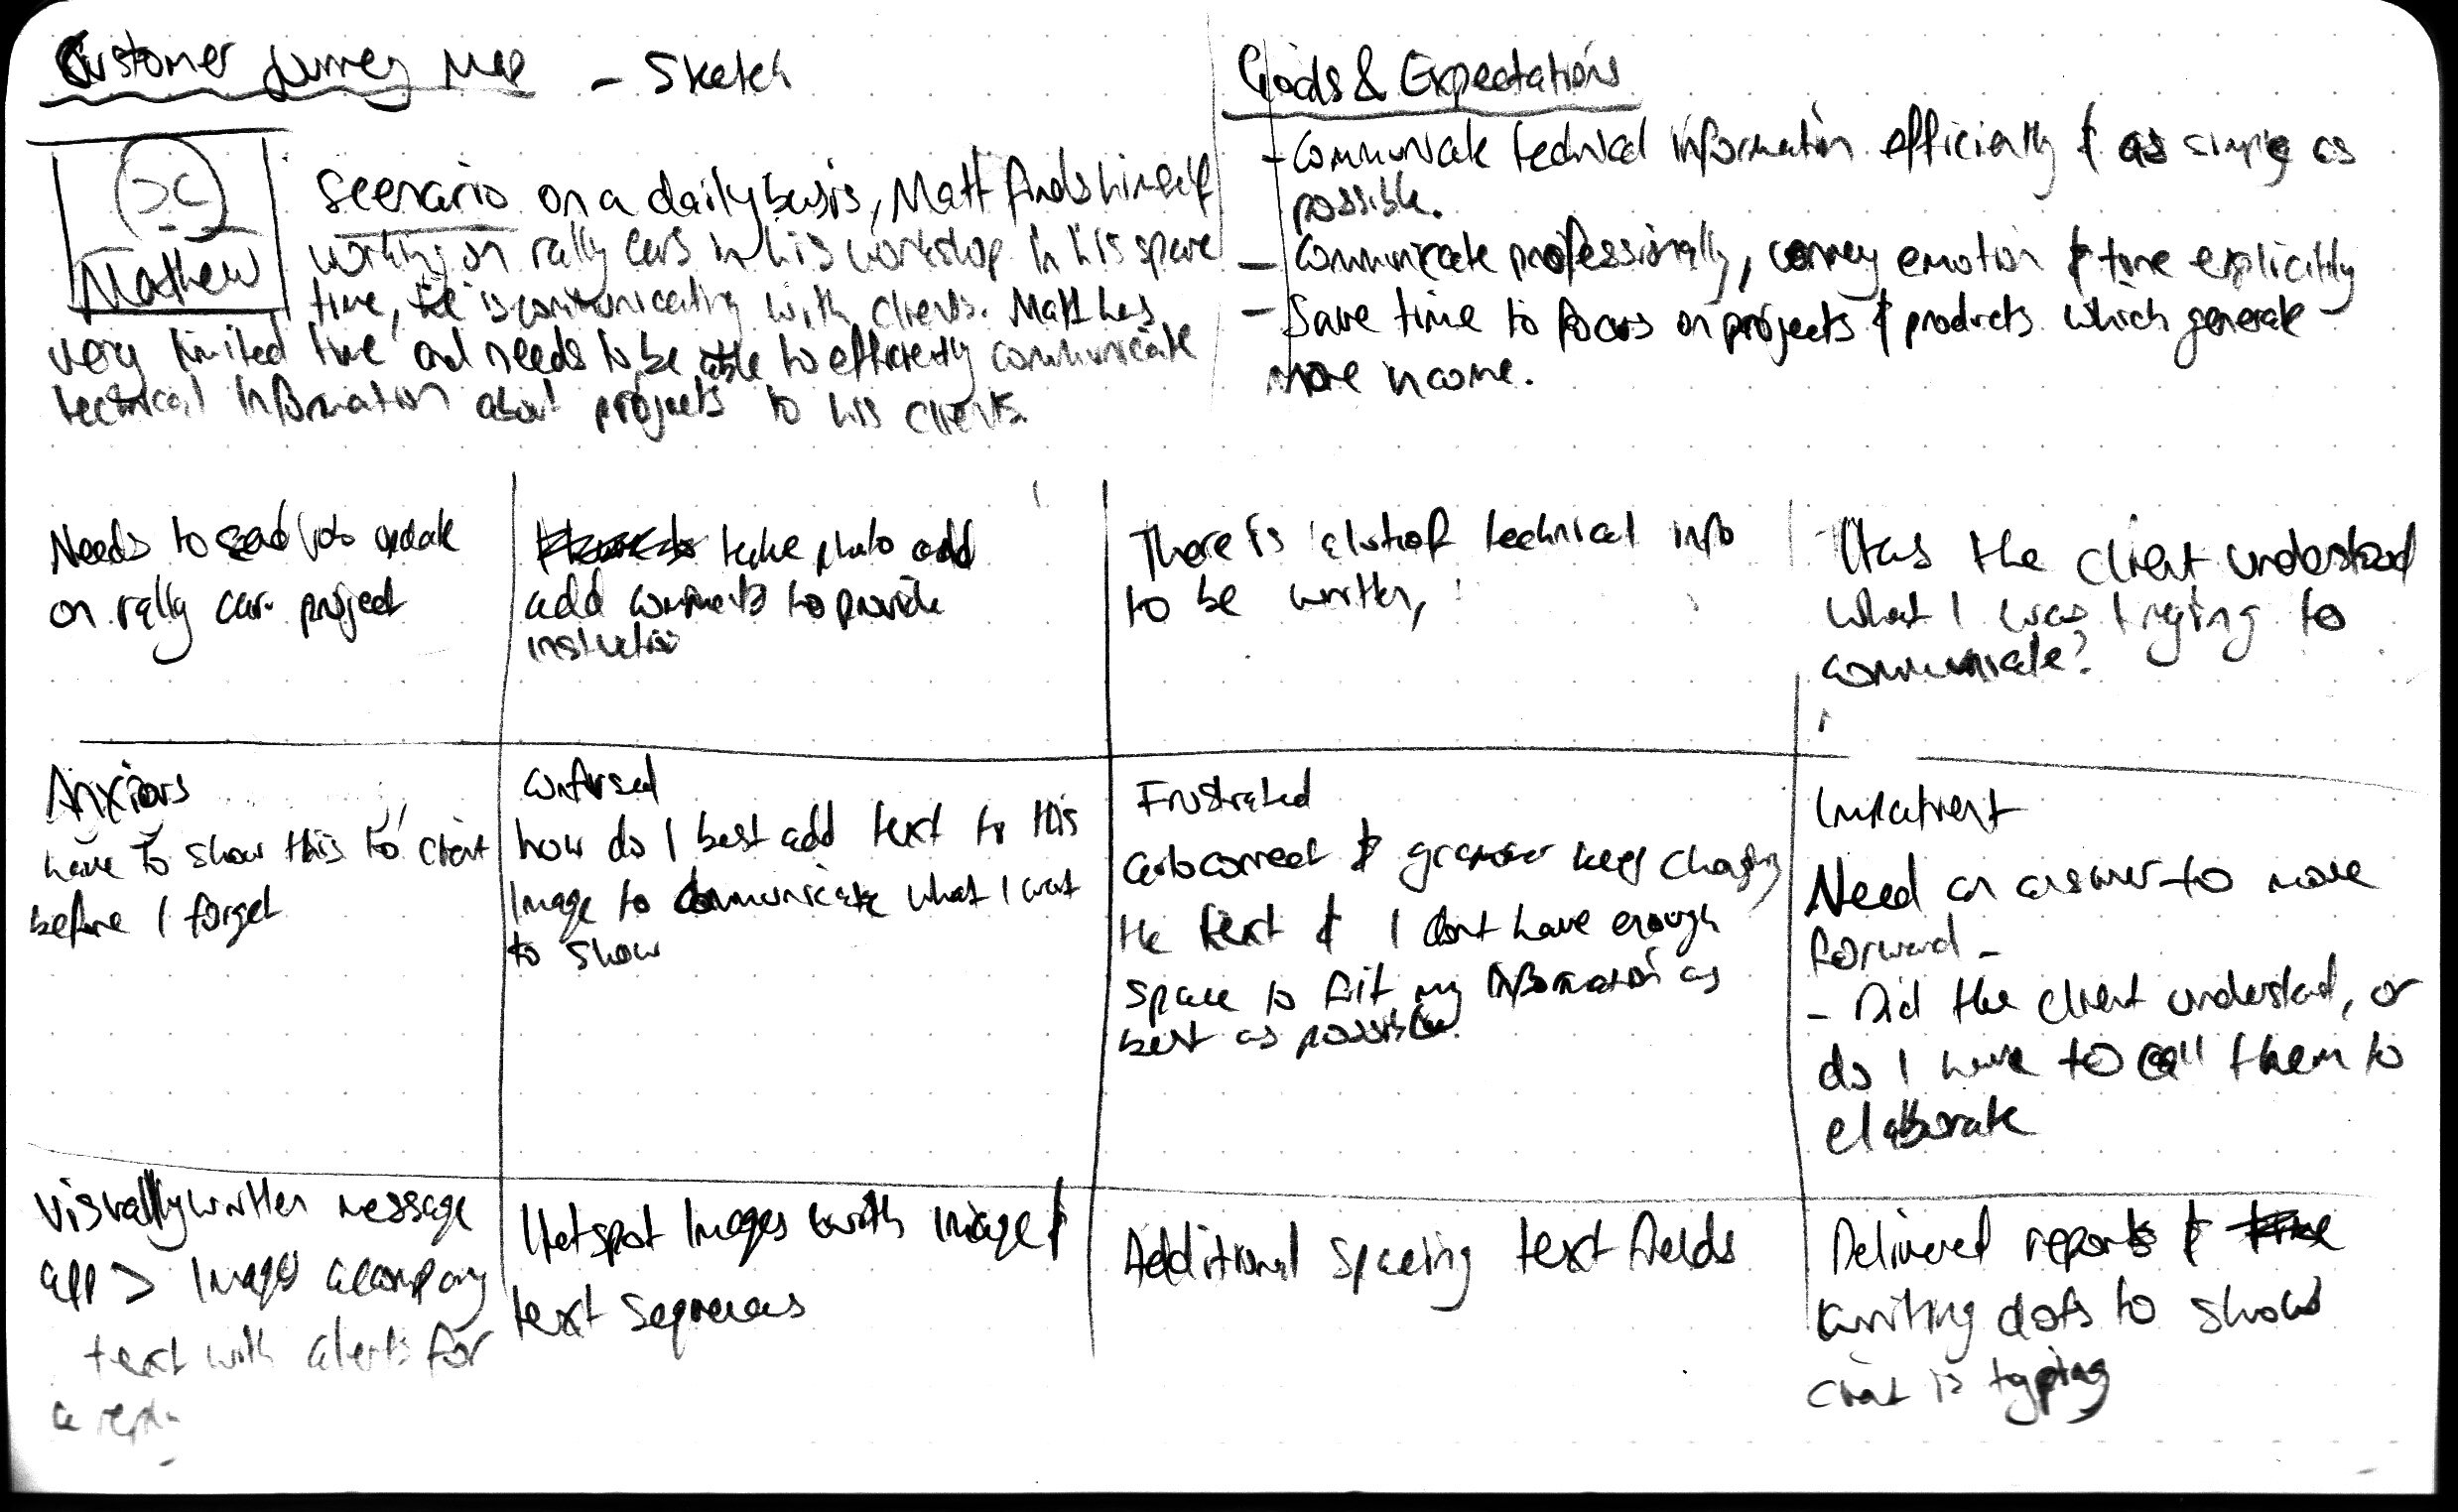 Customer Journey Map - Sketch
Mathew
Scenario on a daily basis, Matt finds himself
working on rally cars in his workshop. In his spare
time, he is communicating with clients. Matt has
very limited time and needs to be able to efficiently communicate
technical information about projects to his clients.
Goals & Expectations
- Communicate technical information efficiently & as simple as
possible.
- Communicate professionally, convey emotion & tone explicitly
- Save time to focus on projects & products which generate
more income.
Needs to send update
on rally car project
take photo and
add comments to provide
instruction
There is alot of technical info
to be written,
Has the client understood
what I was trying to
communicate?
Anxious
have to show this to client
before I forget
Confused
how do I best add text to this
Image to communicate what I want
to show
Frustrated
autocorrect & grammar keep changing
the text & I dont have enough
space to fit my information as
best as possible.
Impatient
Need an answer to move
forward -
- Did the client understand, or
do I have to call them to
elaborate
Visually written message
app > Images accompany
text with alerts for
a reply
Hotspot Images with image &
text sequences
Additional spacing text fields
Delivered reports &
writing dots to show
client is typing